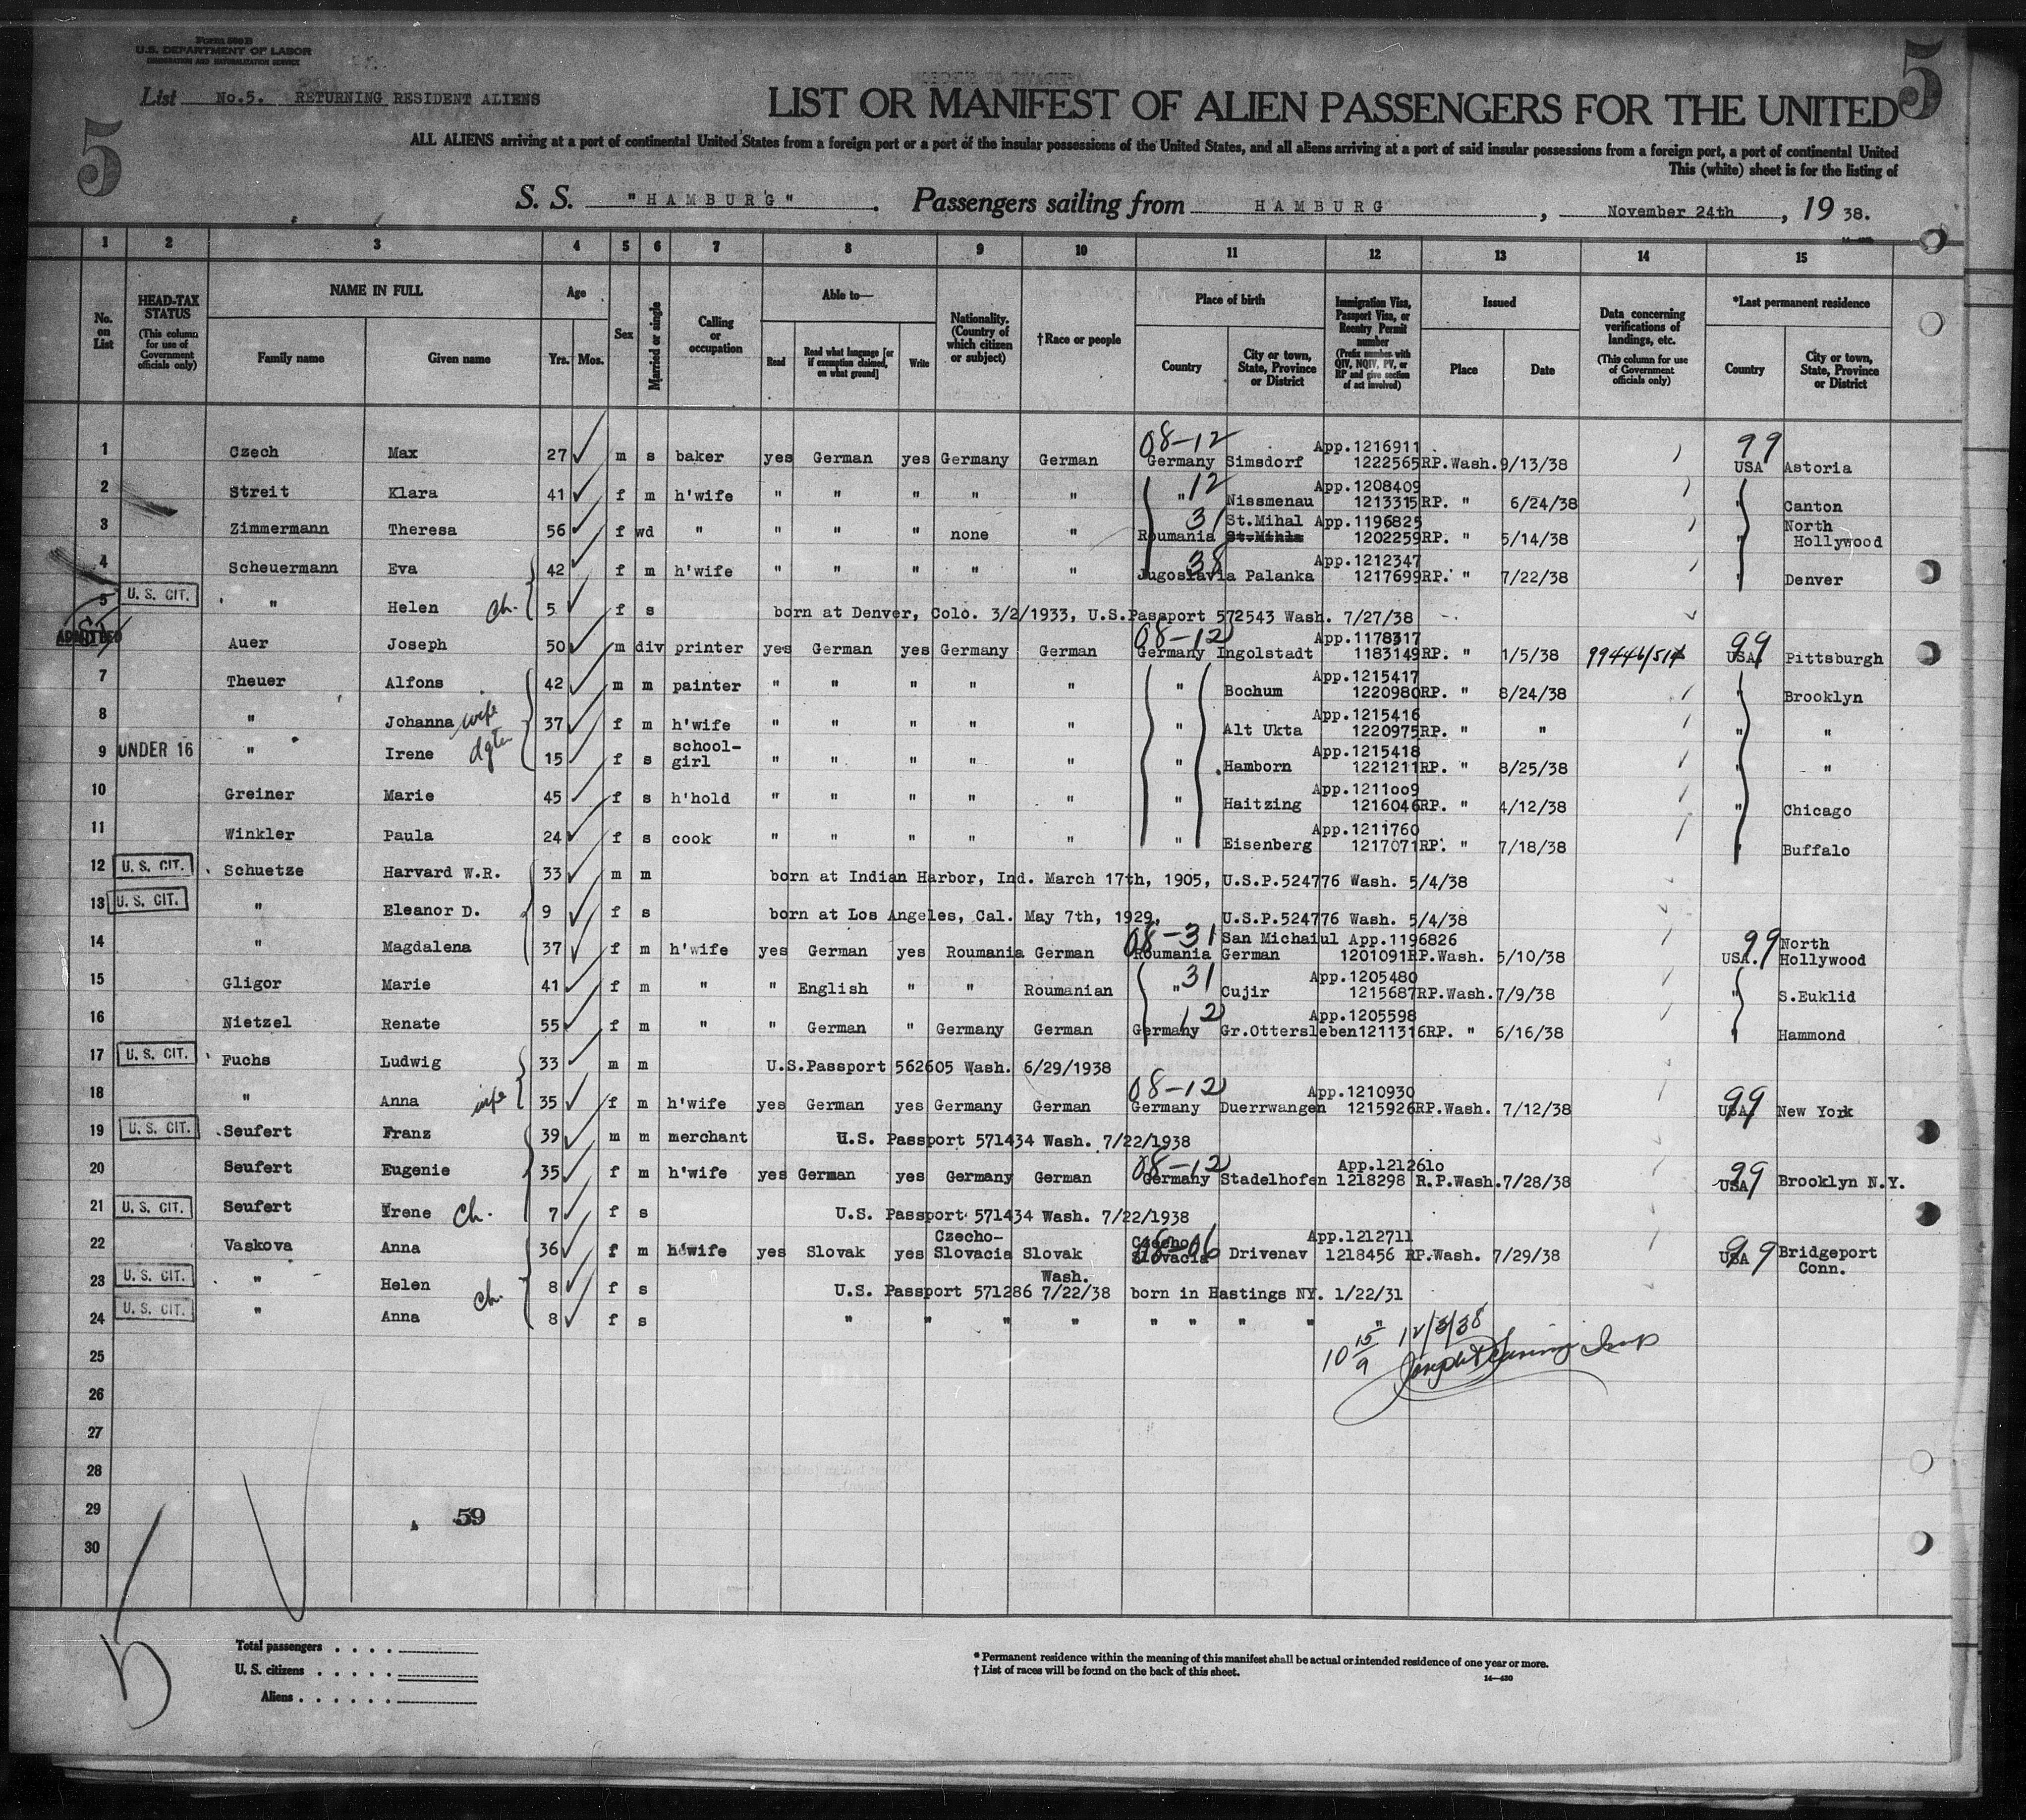 Form 500 B
U.S. DEPARTMENT OF LABOR
IMMIGRATION AND NATURALIZATION SERVICE
List No.5. RETURNING RESIDENT ALIENS
5
5
LIST OR MANIFEST OF ALIEN PASSENGERS FOR THE UNITED
ALL ALIENS arriving at a port of continental United States from a foreign port or a port of the insular possessions of the United States, and all aliens arriving at a port of said insular possessions from a foreign port, a port of continental United
This (white) sheet is for the listing of
S. S. "HAMBURG". Passengers sailing from HAMBURG, November 24th, 19 38.
1 2 3 4 5 6 7 8 9 10 11 12 13 14 15
No. on List
HEAD-TAX STATUS (This column for use of Government officials only)
NAME IN FULL Family name Given name
Age Yrs. Mos.
Sex
Married or single
Calling or occupation
Able to— Read Read what language [or if exemption claimed, on what ground] Write
Nationality. (Country of which citizen or subject)
†Race or people
Place of birth Country City or town, State, Province or District
Immigration Visa, Passport Visa, or Reentry Permit number (Prefix number with QIV, NQIV, PV, or RP and give section of act involved)
Issued Place Date
Data concerning verifications of landings, etc. (This column for use of Government officials only)
*Last permanent residence Country City or town, State, Province or District
08-12 App.1216911 99
1 Czech Max 27 m s baker yes German yes Germany German Germany Simsdorf 1222565 RP.Wash. 9/13/38 USA Astoria
12 App.1208409
2 Streit Klara 41 f m h'wife " " " " " " Nissmenau 1213315 RP. " 6/24/38 " Canton
31 St.Mihal App.1196825 North
3 Zimmermann Theresa 56 f wd " " " " none " Roumania St.Mihla 1202259 RP. " 5/14/38 " Hollywood
38 App.1212347
4 Scheuermann Eva 42 f m h'wife " " " " " Jugoslavia Palanka 1217699 RP. " 7/22/38 " Denver
5 U. S. CIT. " Helen ch. 5 f s born at Denver, Colo. 3/2/1933, U.S.Passport 572543 Wash. 7/27/38
ADMITTED
08-12 App.1178317 99
Auer Joseph 50 m div printer yes German yes Germany German Germany Ingolstadt 1183149 RP. " 1/5/38 99446/514 USA Pittsburgh
App.1215417
7 Theuer Alfons 42 m m painter " " " " " " Bochum 1220980 RP. " 8/24/38 " Brooklyn
App.1215416
8 " Johanna wife 37 f m h'wife " " " " " " Alt Ukta 1220975 RP. " " " "
App.1215418
9 UNDER 16 " Irene dgter 15 f s school-girl " " " " " " Hamborn 1221211 RP. " 8/25/38 " "
App.1211oo9
10 Greiner Marie 45 f s h'hold " " " " " " Haitzing 1216046 RP. " 4/12/38 " Chicago
App.1211760
11 Winkler Paula 24 f s cook " " " " " " Eisenberg 1217071 RP. " 7/18/38 " Buffalo
12 U. S. CIT. Schuetze Harvard W.R. 33 m m born at Indian Harbor, Ind. March 17th, 1905, U.S.P.524776 Wash. 5/4/38
13 U. S. CIT. " Eleanor D. 9 f s born at Los Angeles, Cal. May 7th, 1929, U.S.P.524776 Wash. 5/4/38
08-31 San Michaiul App.1196826 99 North
14 " Magdalena 37 f m h'wife yes German yes Roumania German Roumania German 1201091 RP.Wash. 5/10/38 USA. Hollywood
31 App.1205480
15 Gligor Marie 41 f m " " English " " Roumanian " Cujir 1215687 RP.Wash. 7/9/38 " S.Euklid
12 App.1205598
16 Nietzel Renate 55 f m " " German " Germany German Germany Gr.Ottersleben 1211316 RP. " 6/16/38 " Hammond
17 U. S. CIT. Fuchs Ludwig 33 m m U.S.Passport 562605 Wash. 6/29/1938
08-12 App.1210930 99
18 " Anna wife 35 f m h'wife yes German yes Germany German Germany Duerrwangen 1215926 RP.Wash. 7/12/38 USA New York
19 U. S. CIT. Seufert Franz 39 m m merchant U.S. Passport 571434 Wash. 7/22/1938
08-12 App.121261o 99
20 Seufert Eugenie 35 f m h'wife yes German yes Germany German Germany Stadelhofen 1218298 R.P.Wash. 7/28/38 USA Brooklyn N.Y.
21 U. S. CIT. Seufert Irene Ch. 7 f s U.S. Passport 571434 Wash. 7/22/1938
08-06 App.1212711 99
22 Vaskova Anna 36 f m h'wife yes Slovak yes Czecho-Slovacia Slovak Czecho Slovacia Drivenav 1218456 RP.Wash. 7/29/38 USA Bridgeport Conn.
23 U. S. CIT. " Helen 8 f s U.S. Passport 571286 Wash. 7/22/38 born in Hastings NY. 1/22/31
ch.
24 U. S. CIT. " Anna 8 f s " " " " " " " " "
10 15/9 12/3/38
25
26
27
28
29 59
30
5
Total passengers . . . .
U. S. citizens . . . . .
Aliens . . . . . .
* Permanent residence within the meaning of this manifest shall be actual or intended residence of one year or more.
† List of races will be found on the back of this sheet.
14—430